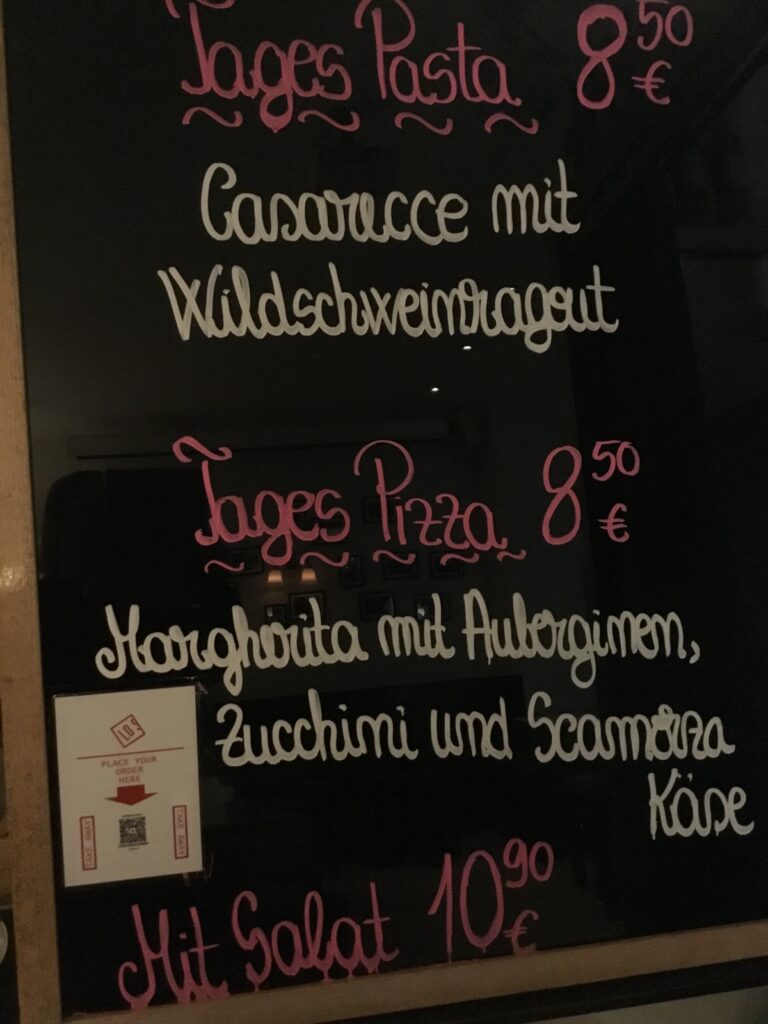 Tages Pasta 8 50 €
Casarecce mit
Wildschweinragout
Tages Pizza 8 50 €
Margherita mit Auberginen,
Zucchini und Scamorza
Käse
PLACE YOUR
ORDER
HERE
TAKE AWAY
TAKE AWAY
Mit Salat 10 90 €